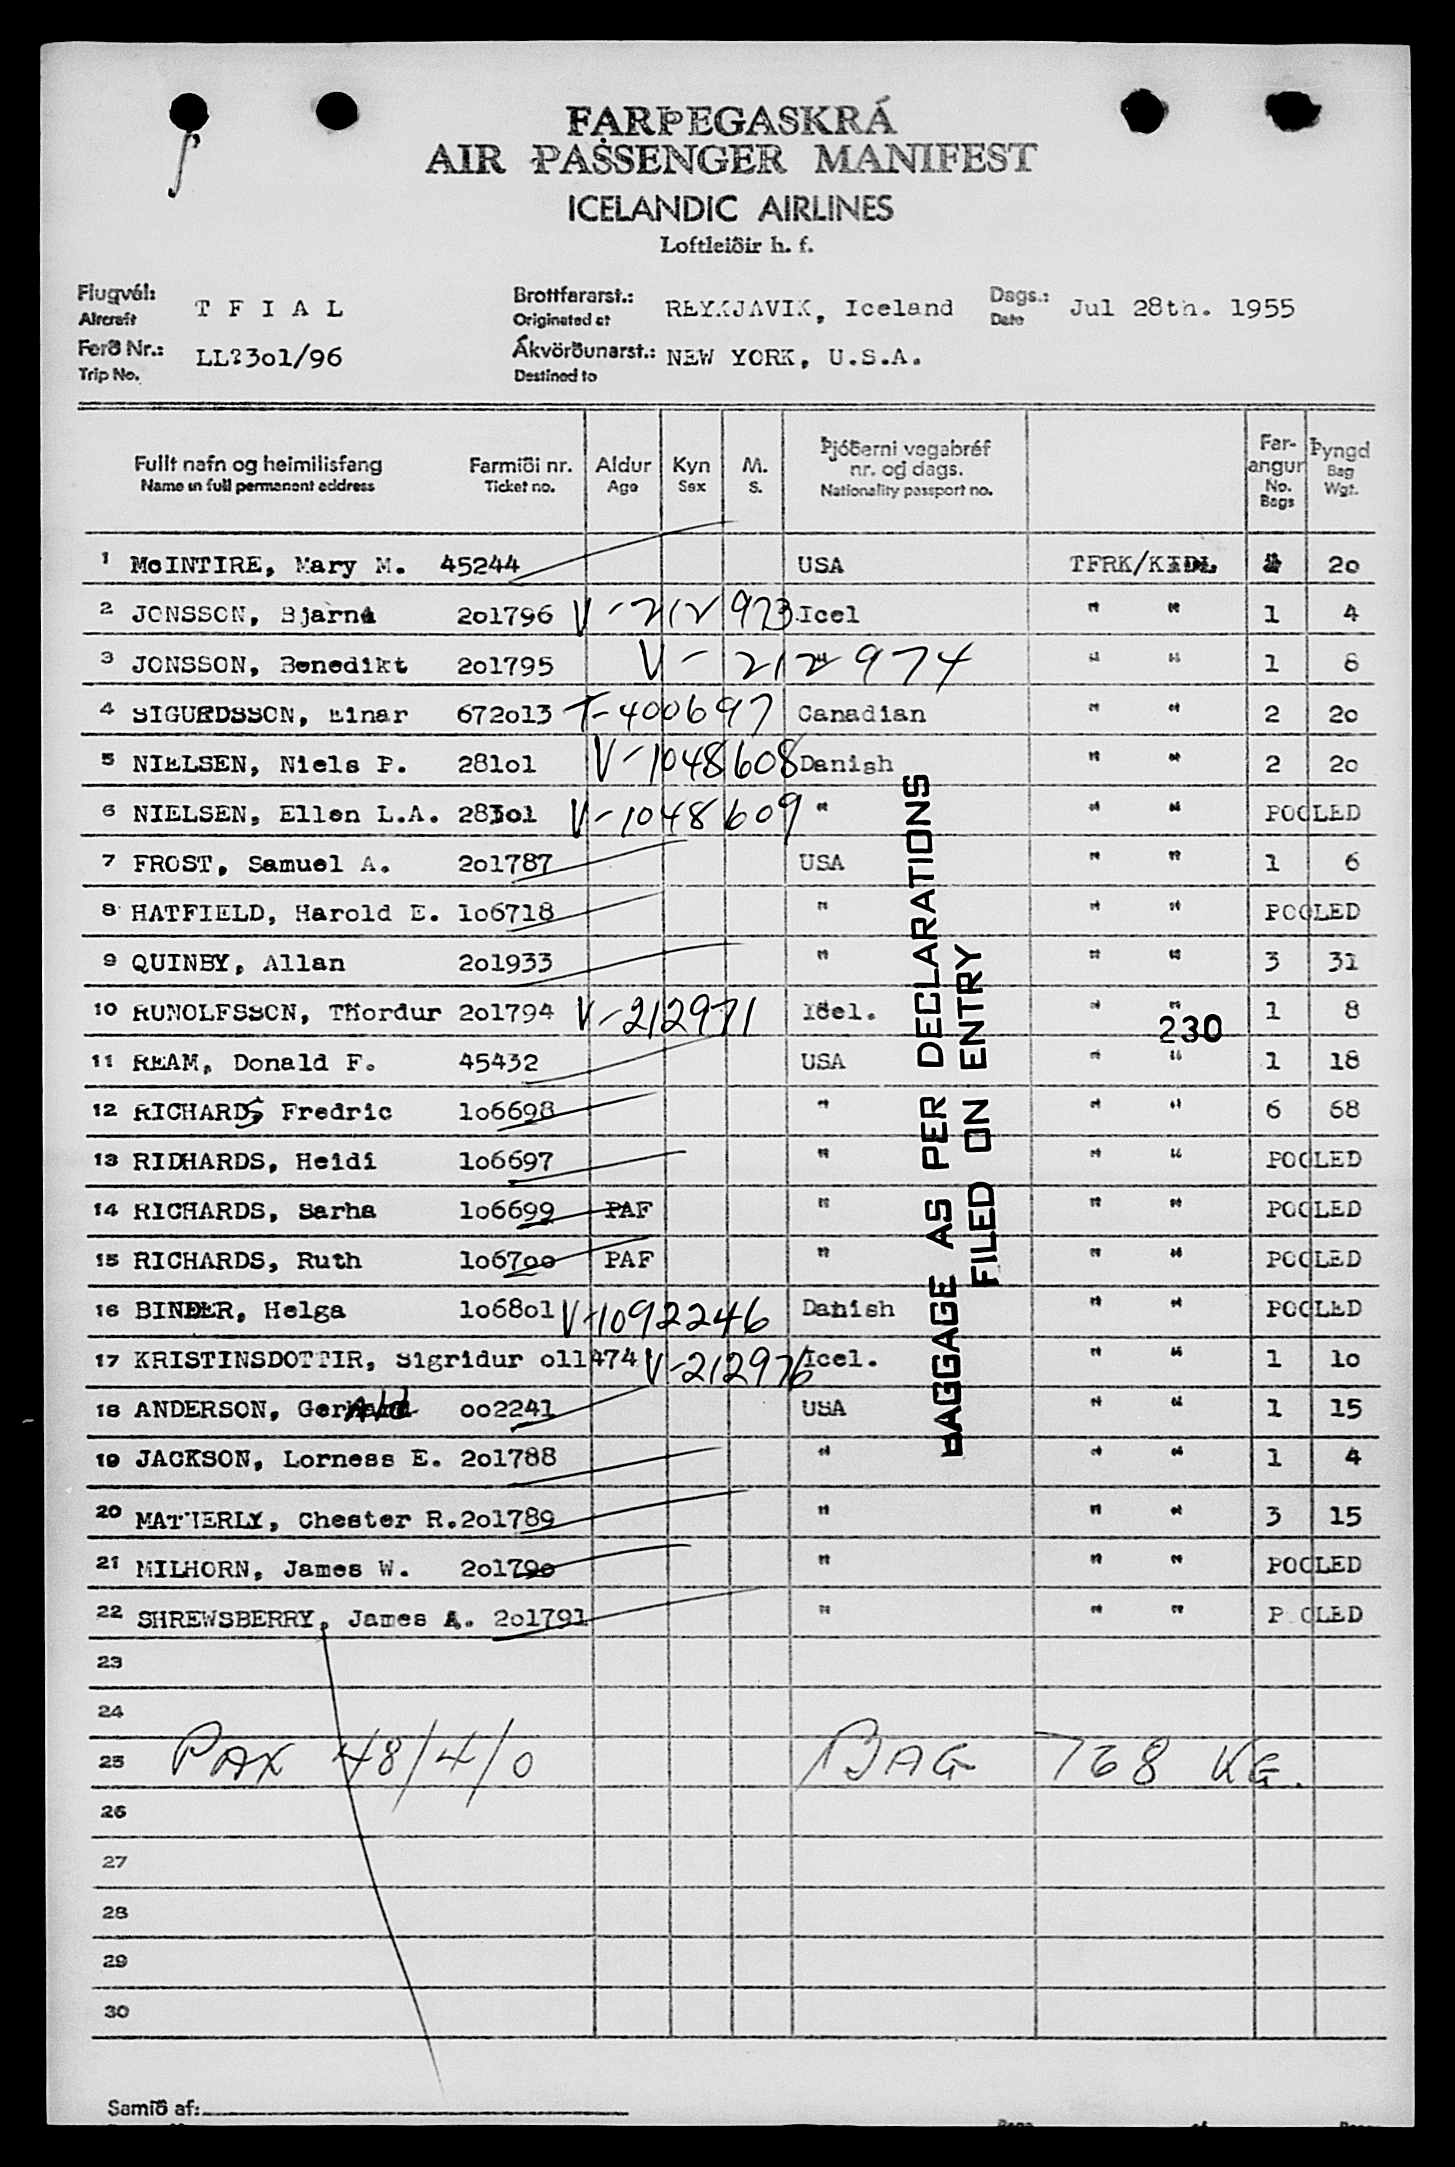 FARÞEGASKRÁ
AIR PASSENGER MANIFEST
ICELANDIC AIRLINES
Loftleiðir h. f.
Flugvél: T F I A L Brottfararst.: REYKJAVIK, Iceland Dags.: Jul 28th. 1955
Aircraft Originated at Date
Ferð Nr.: LL2301/96 Ákvörðunarst.: NEW YORK, U.S.A.
Trip No. Destined to
Fullt nafn og heimilisfang Farmiði nr. Aldur Kyn M. Þjóðerni vegabréf nr. og dags. Far-angur Þyngd
Name in full permanent address Ticket no. Age Sex S. Nationality passport no. No. Bags Bag Wgt.
1 McINTIRE, Mary M. 45244 USA TFRK/KIDL 20
2 JONSSON, Bjarni 201796 V-212973 Icel " " 1 4
3 JONSSON, Benedikt 201795 V-212974 " " 1 8
4 SIGURDSSON, Einar 672013 T-400697 Canadian " " 2 20
5 NIELSEN, Niels P. 28101 V-1048608 Danish " " 2 20
6 NIELSEN, Ellen L.A. 28301 V-1048609 " " " POOLED
7 FROST, Samuel A. 201787 USA " " 1 6
8 HATFIELD, Harold E. 106718 " " " POOLED
9 QUINBY, Allan 201933 " " " 3 31
10 RUNOLFSSON, Thordur 201794 V-212971 Icel. " " 1 8
230
11 REAM, Donald F. 45432 USA " " 1 18
12 RICHARDS, Fredric 106698 " " " 6 68
13 RIDHARDS, Heidi 106697 " " " POOLED
14 RICHARDS, Sarha 106699 PAF " " " POOLED
15 RICHARDS, Ruth 106700 PAF " " " POOLED
16 BINDER, Helga 106801 V-1092246 Danish " " POOLED
17 KRISTINSDOTTIR, Sigridur 011474 V-212976 Icel. " " 1 10
18 ANDERSON, Gerald 002241 USA " " 1 15
19 JACKSON, Lorness E. 201788 " " " 1 4
20 MATTERLY, Chester R. 201789 " " " 3 15
21 MILHORN, James W. 201790 " " " POOLED
22 SHREWSBERRY, James A. 201791 " " " POOLED
BAGGAGE AS PER DECLARATIONS
FILED ON ENTRY
23
24
25 PAX 48/4/0 BAG 768 KG.
26
27
28
29
30
Samið af: